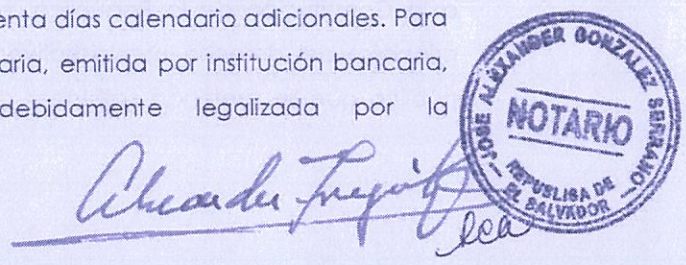 enta días calendario adicionales. Para
aria, emitida por institución bancaria,
debidamente legalizada por la
JOSE ALEXANDER GONZALEZ SERRANO
NOTARIO
REPUBLICA DE
EL SALVADOR